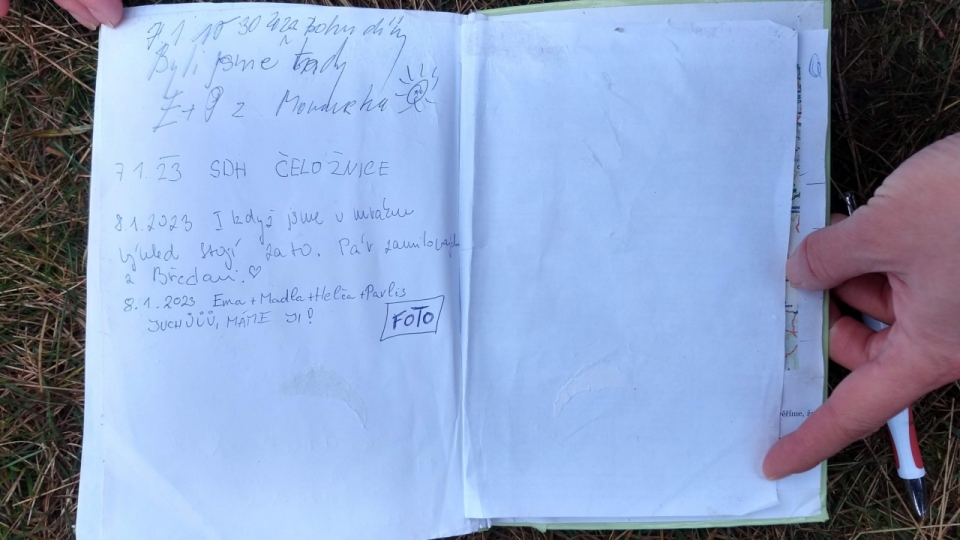 7.1 10 30 za pohodičky
Byli jsme tady
Ž + P z Mouchnic
7.1.23 SDH ČELOŽNICE
8.1.2023 I když jsme v mrazu
výhled stojí za to. Pár zamilovaných
z Břeclavi. ♡
8.1.2023 Ema + Madla + Helča + Pavlis
JUCHŮŮŮ, MÁME JI!
FOTO